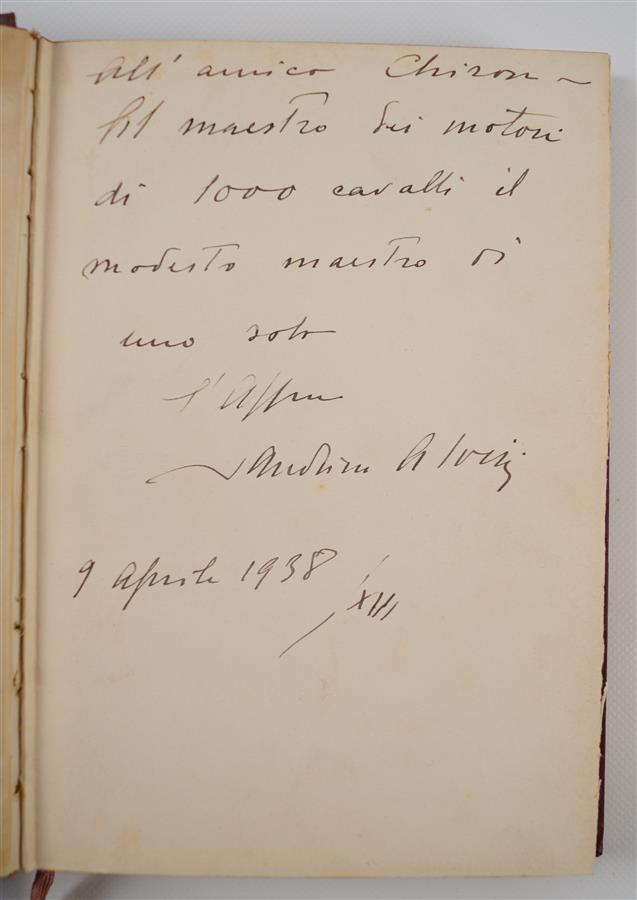 All' amico Chiron -
Al maestro dei motori
di 1000 cavalli il
modesto maestro di
uno solo
l'Affmo
9 Aprile 1938